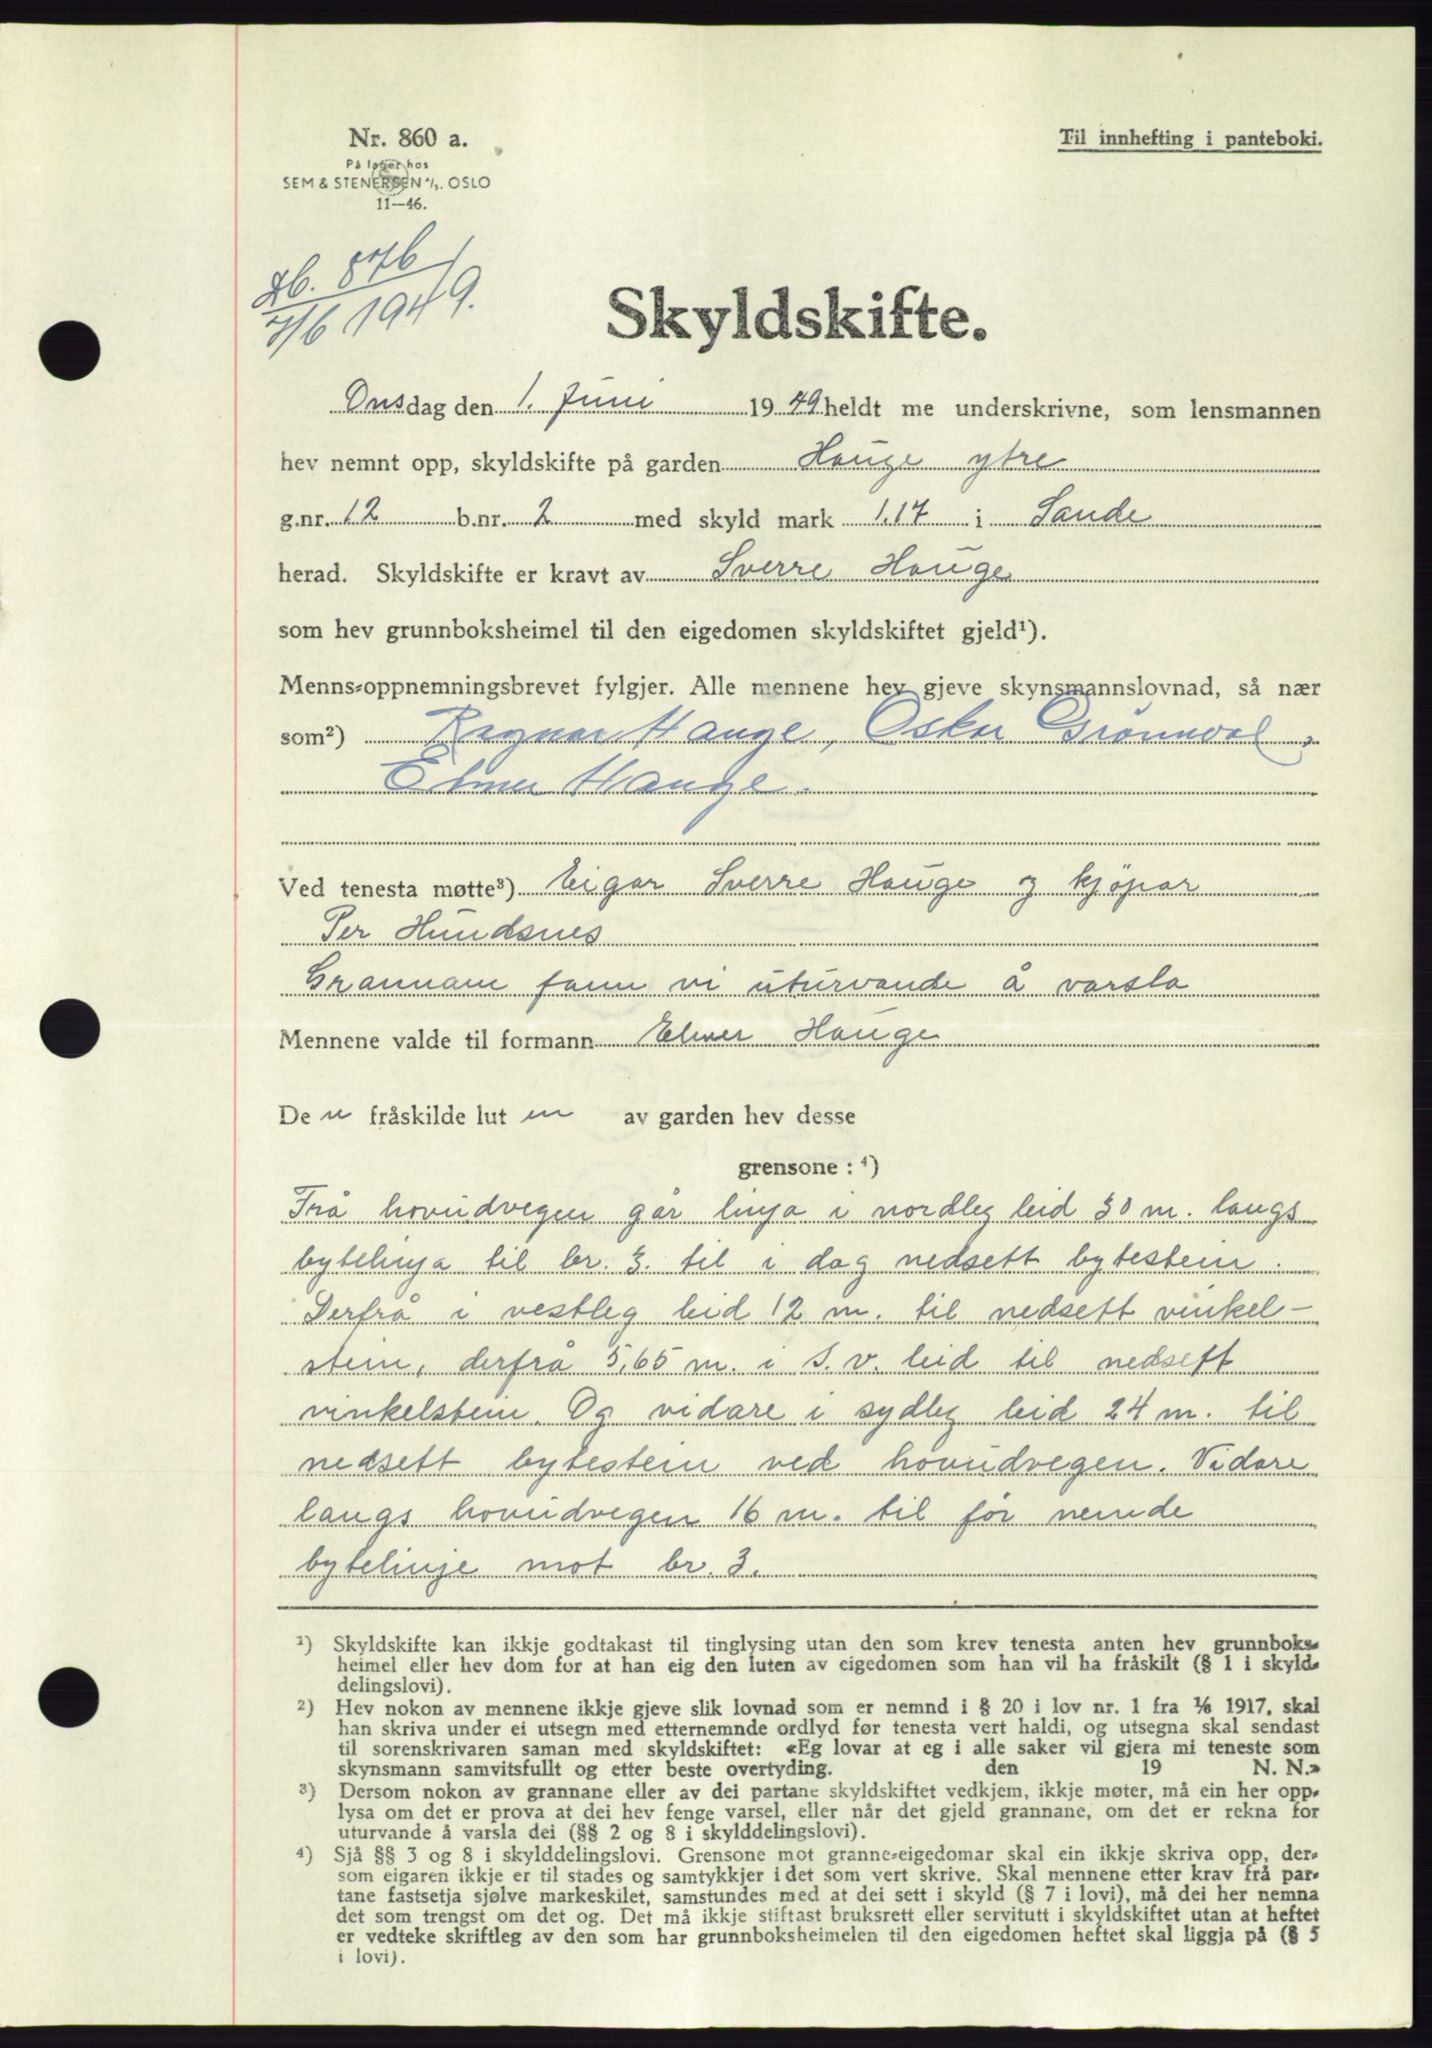 Nr. 860 a.
Til innhefting i panteboki.
På lager hos
SEM & STENERSEN A/S, OSLO
11—46.
Db. 876/
7/6 1949.
Skyldskifte.
Onsdag den 1. Juni 1949 heldt me underskrivne, som lensmannen
hev nemnt opp, skyldskifte på garden Hauge ytre
g.nr. 12 b.nr. 2 med skyld mark 1.17 i Sande
herad. Skyldskifte er kravt av Sverre Hauge
som hev grunnboksheimel til den eigedomen skyldskiftet gjeld¹).
Menns-oppnemningsbrevet fylgjer. Alle mennene hev gjeve skynsmannslovnad, så nær
som²) Ragnar Hauge, Oskar Grönnvol,
Elmer Hauge.
Ved tenesta møtte³) Eigar Sverre Hauge og kjöpar
Per Hundsnes
Grannane fann vi uturvande å varsla
Mennene valde til formann Elmer Hauge
De n fråskilde lut en av garden hev desse
grensone : ⁴)
Frå hovudvegen går linja i nordleg leid 30 m. langs
bytelinja til br. 3. til i dag nedsett bytestein.
Derfrå i vestleg leid 12 m. til nedsett vinkel-
stein, derfrå 5,65 m. i S.v. leid til nedsett
vinkelstein. Og vidare i sydleg leid 24 m. til
nedsett bytestein ved hovudvegen. Vidare
langs hovudvegen 16 m. til før nemde
bytelinje mot br. 3.
¹) Skyldskifte kan ikkje godtakast til tinglysing utan den som krev tenesta anten hev grunnboks-
heimel eller hev dom for at han eig den luten av eigedomen som han vil ha fråskilt (§ 1 i skyld-
delingslovi).
²) Hev nokon av mennene ikkje gjeve slik lovnad som er nemnd i § 20 i lov nr. 1 fra 1/6 1917, skal
han skriva under ei utsegn med etternemnde ordlyd før tenesta vert haldi, og utsegna skal sendast
til sorenskrivaren saman med skyldskiftet: «Eg lovar at eg i alle saker vil gjera mi teneste som
skynsmann samvitsfullt og etter beste overtyding. den 19 N. N.»
³) Dersom nokon av grannane eller av dei partane skyldskiftet vedkjem, ikkje møter, må ein her opp-
lysa om det er prova at dei hev fenge varsel, eller når det gjeld grannane, om det er rekna for
uturvande å varsla dei (§§ 2 og 8 i skylddelingslovi).
⁴) Sjå §§ 3 og 8 i skylddelingslovi. Grensone mot granne-eigedomar skal ein ikkje skriva opp, der-
som eigaren ikkje er til stades og samtykkjer i det som vert skrive. Skal mennene etter krav frå par-
tane fastsetja sjølve markeskilet, samstundes med at dei sett i skyld (§ 7 i lovi), må dei her nemna
det som trengst om det og. Det må ikkje stiftast bruksrett eller servitutt i skyldskiftet utan at heftet
er vedteke skriftleg av den som har grunnboksheimelen til den eigedomen heftet skal liggja på (§ 5
i lovi).